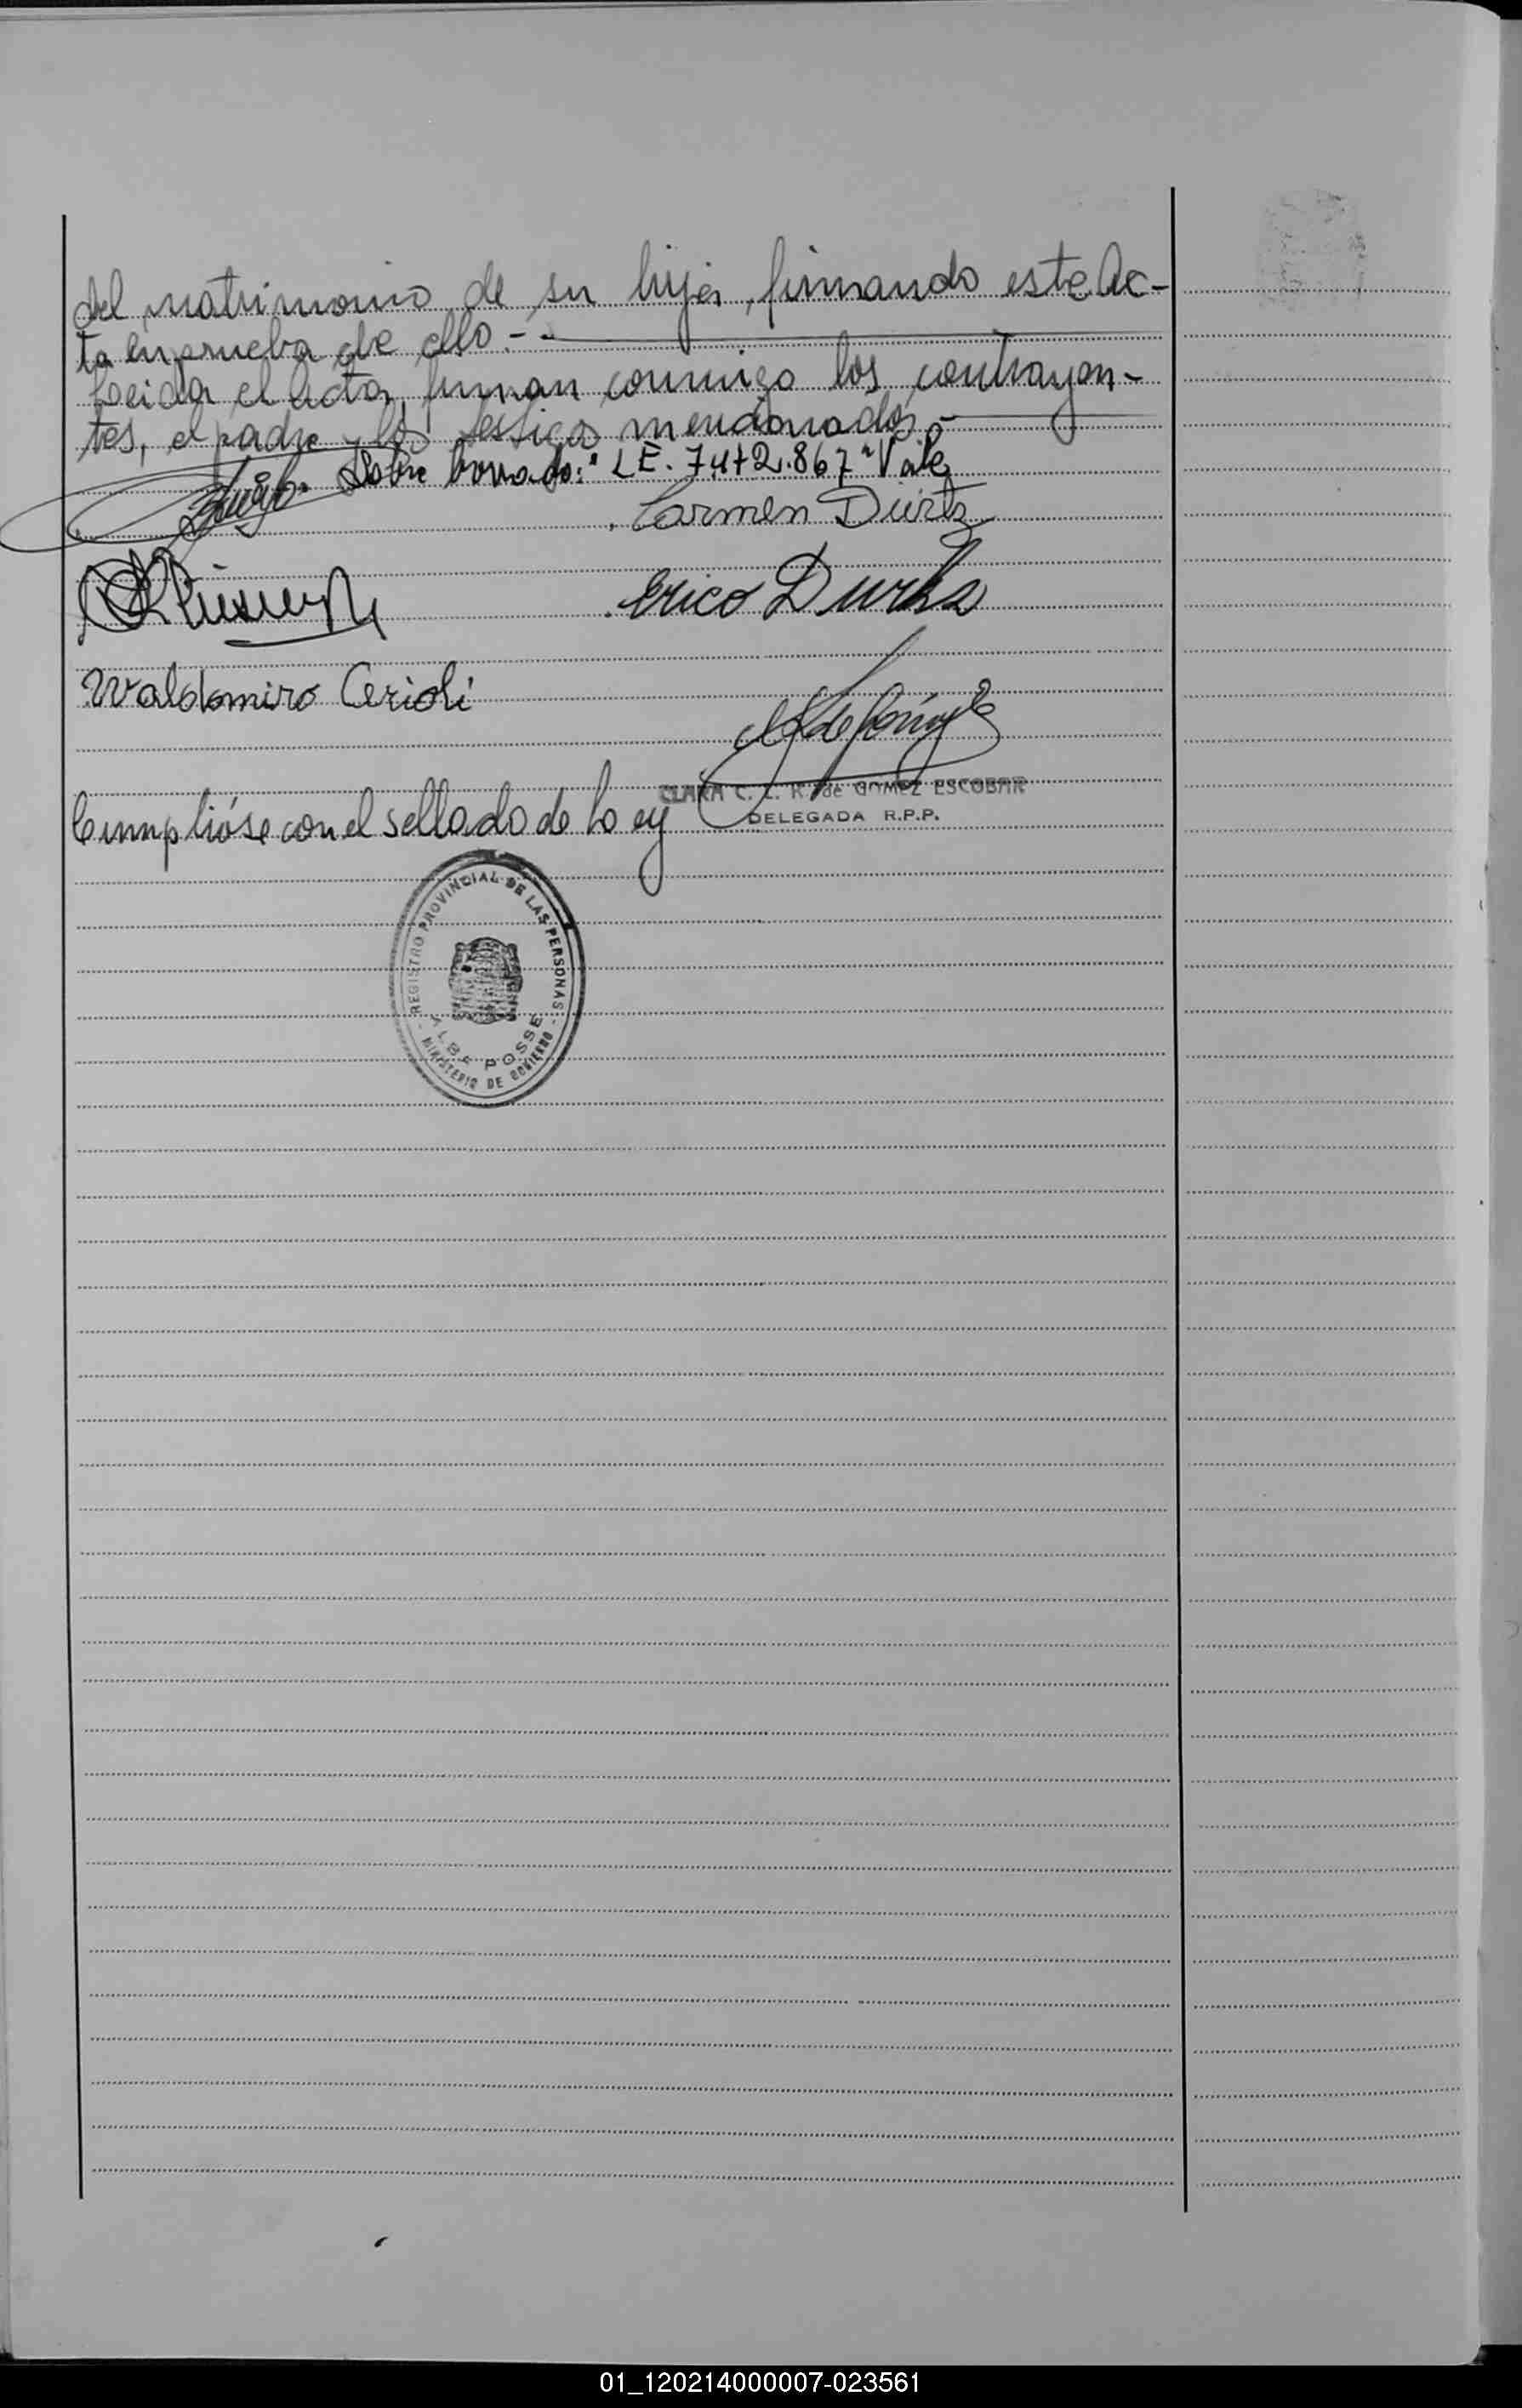 del matrimonio de su hija, firmando este Ac-
ta en prueba de ello.-
Leida el Acta, firman conmigo los contrayen-
tes, el padre y los testigos mencionados.-
Sobre borrado: "LE. 7.472.867" Vale
Carmen Dürks
Erico Durks
Waldomiro Cerioli
CLARA C. L. R. de GOMEZ ESCOBAR
DELEGADA R.P.P.
Cumplióse con el sellado de Ley
REGISTRO PROVINCIAL DE LAS PERSONAS
ALBA POSSE
MINISTERIO DE GOBIERNO
01_120214000007-023561